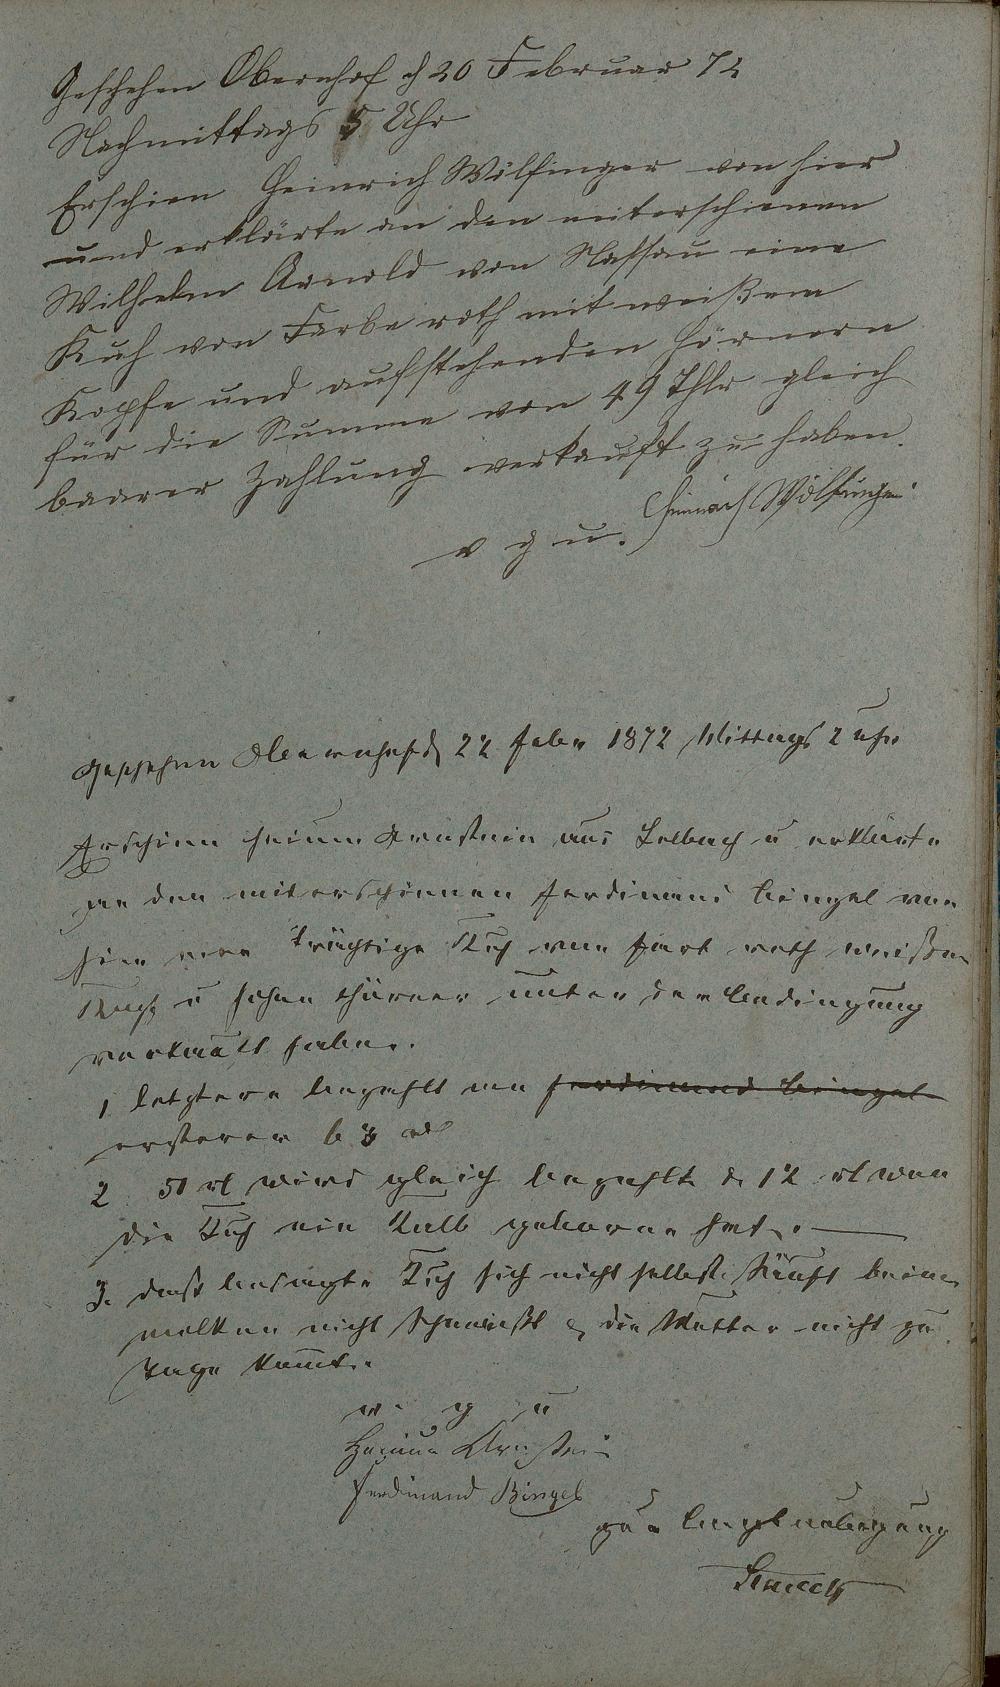 Geschehen Obernhof d 20 Februar 72
Nachmittags 5 Uhr
Erschien Heinrich Wölfinger von hier
und erklärte an den miterschienen
Wilhelm Arnold von Nassau eine
Kuh von Farbe roth mit weißem
Kopfe und aufstehenden Hörnern
für die Summe von 49 Thlr gleich
baarer Zahlung verkauft zu haben.
v g u. Heinrich Wölfinger
Geschehen Obernhof d 22 Febr 1872 Mittags 2 Uhr
Erschien aus Seelbach u erklärte
an den miterschienen Ferdinand Bingel von
hier eine trächtige Kuh von Farb roth weißen
Kopf u hohen Hörner unter der bedingung
verkauft habe.
1 letztere bezahlt an Ferdinand Bingel
ersterer
2 rl wird gleich bezahlt d 12 rl wan
die Kuh ein Kalb geboren hat.
3. daß besagte Kuh sich nicht selbst Säuft beim
melken nicht Schmeißt & die Mutter nicht zu
tage kommt.
v. g u
Ferdinand Bingel
zur beglaubigung